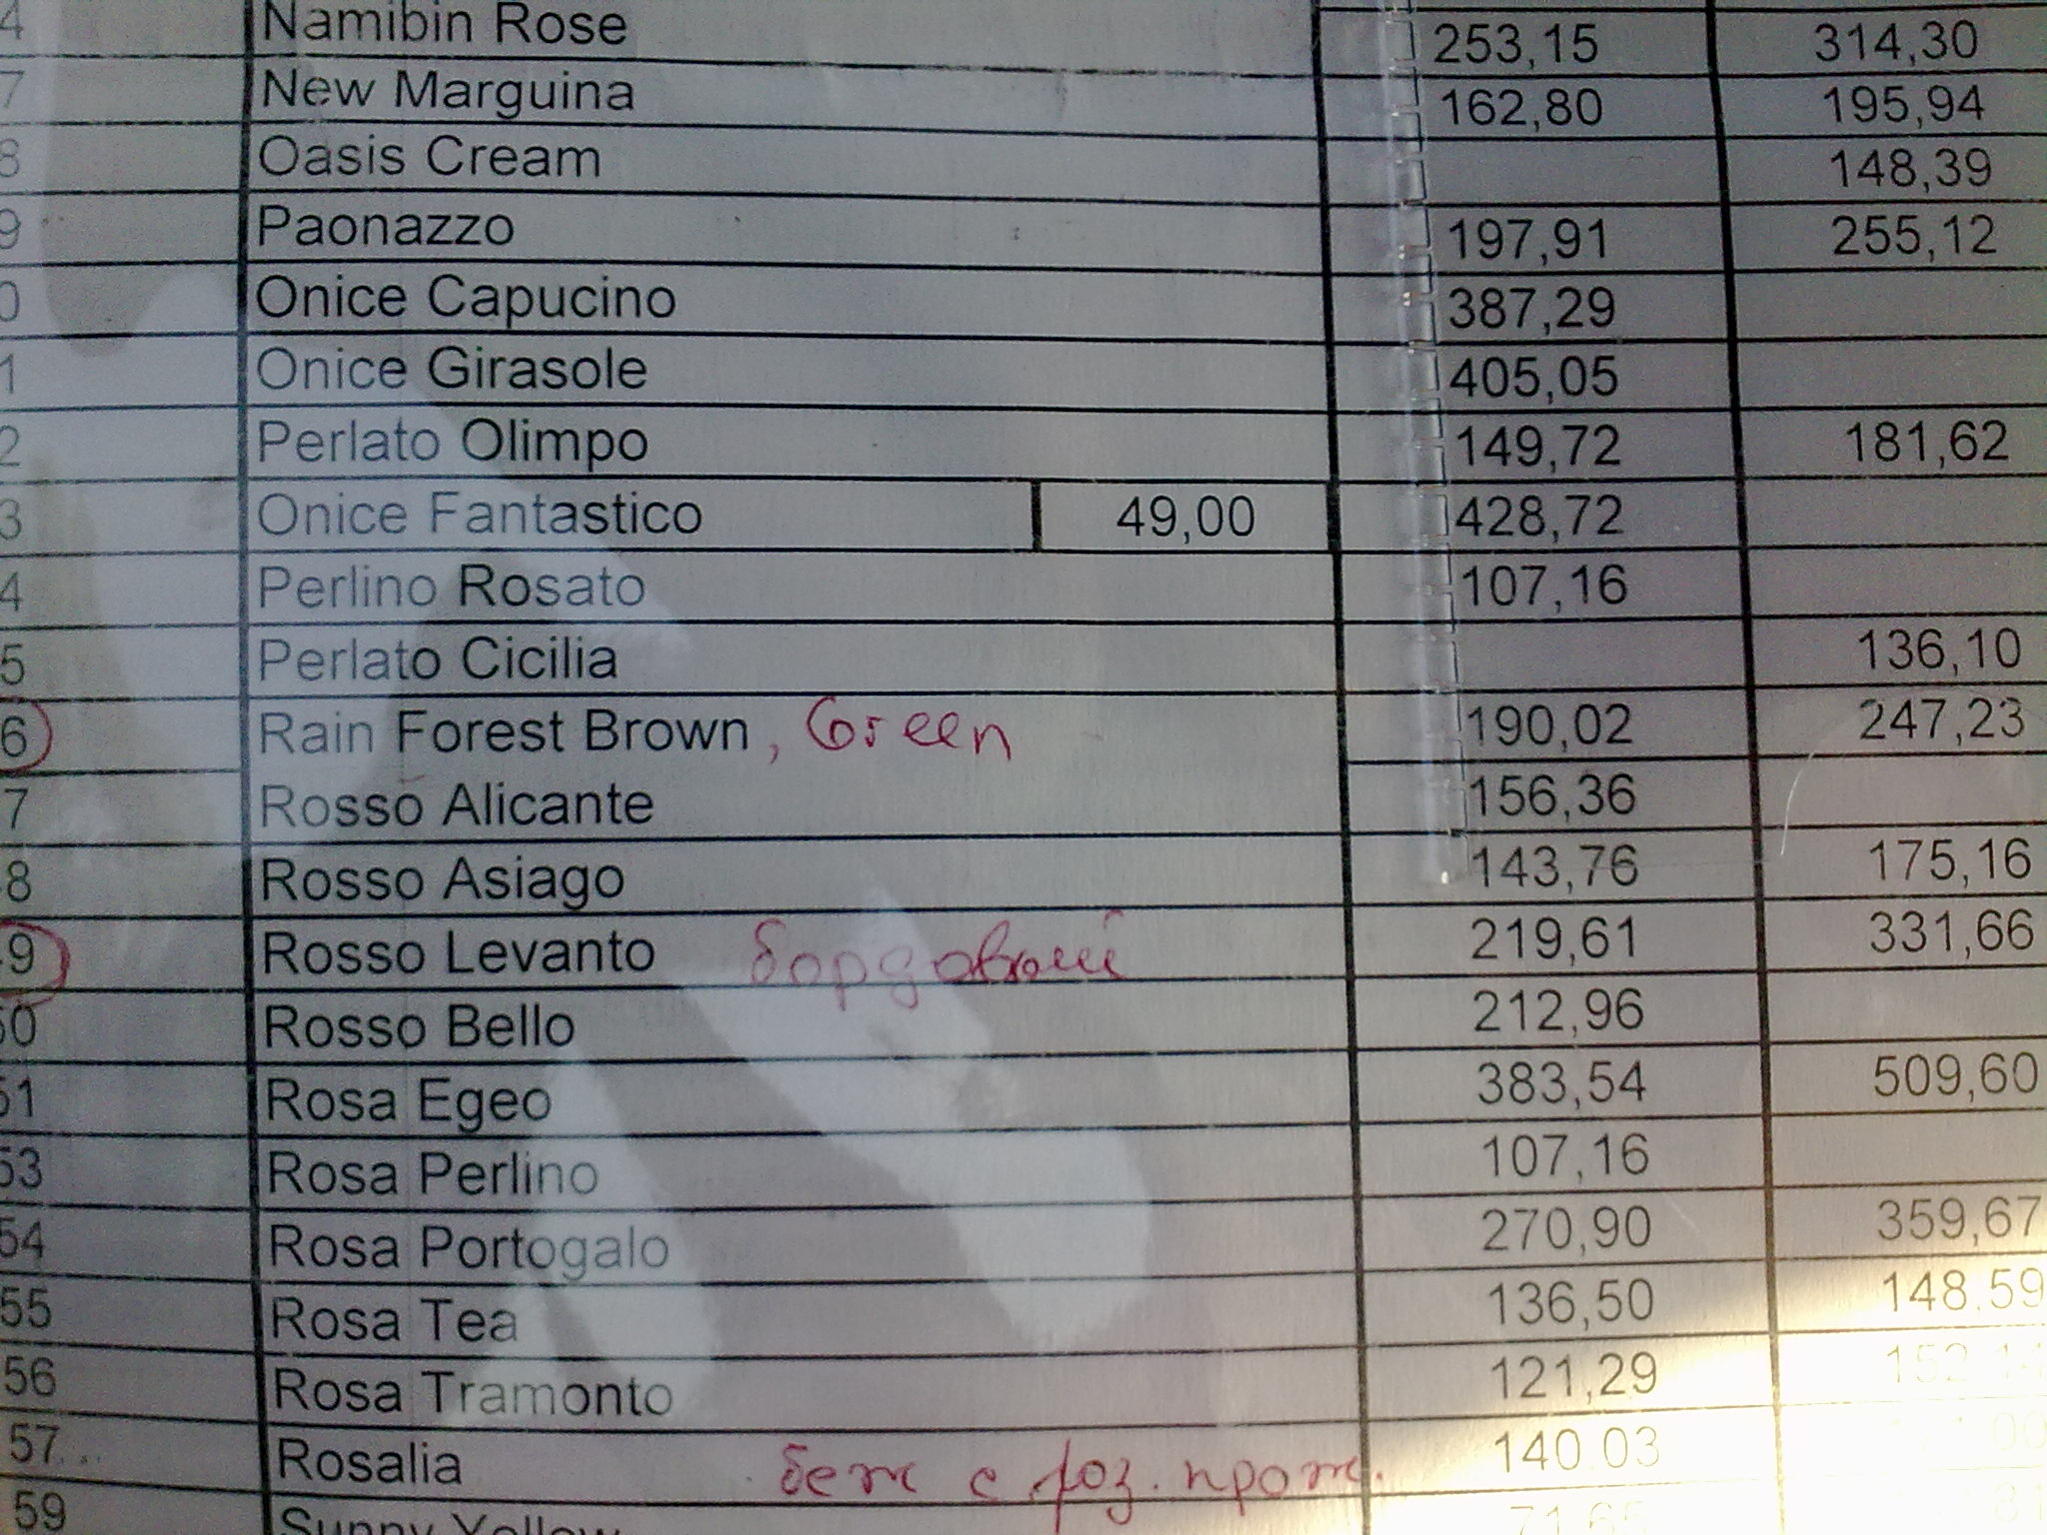 4 Namibin Rose 253,15 314,30
7 New Marguina 162,80 195,94
8 Oasis Cream 148,39
9 Paonazzo 197,91 255,12
0 Onice Capucino 387,29
1 Onice Girasole 405,05
2 Perlato Olimpo 149,72 181,62
3 Onice Fantastico 49,00 428,72
4 Perlino Rosato 107,16
5 Perlato Cicilia 136,10
6 Rain Forest Brown, Green 190,02 247,23
7 Rosso Alicante 156,36
8 Rosso Asiago 143,76 175,16
49 Rosso Levanto бордовый 219,61 331,66
50 Rosso Bello 212,96
51 Rosa Egeo 383,54 509,60
53 Rosa Perlino 107,16
54 Rosa Portogalo 270,90 359,67
55 Rosa Tea 136,50 148.59
56 Rosa Tramonto 121,29
57 Rosalia беж с роз. прож. 140.03
59 Sunny Yellow